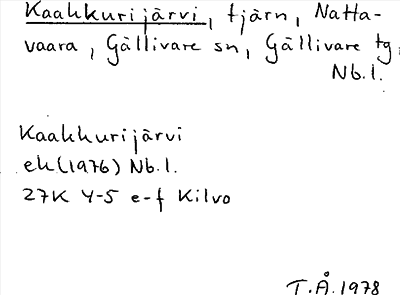 Kaakkurijärvi, tjärn, Natta-
vaara, Gällivare sn, Gällivare tg,
Nb.l.
Kaakkurijärvi
ek(1976) Nb.l.
27K 4-5 e-f Kilvo
T.Å.1978